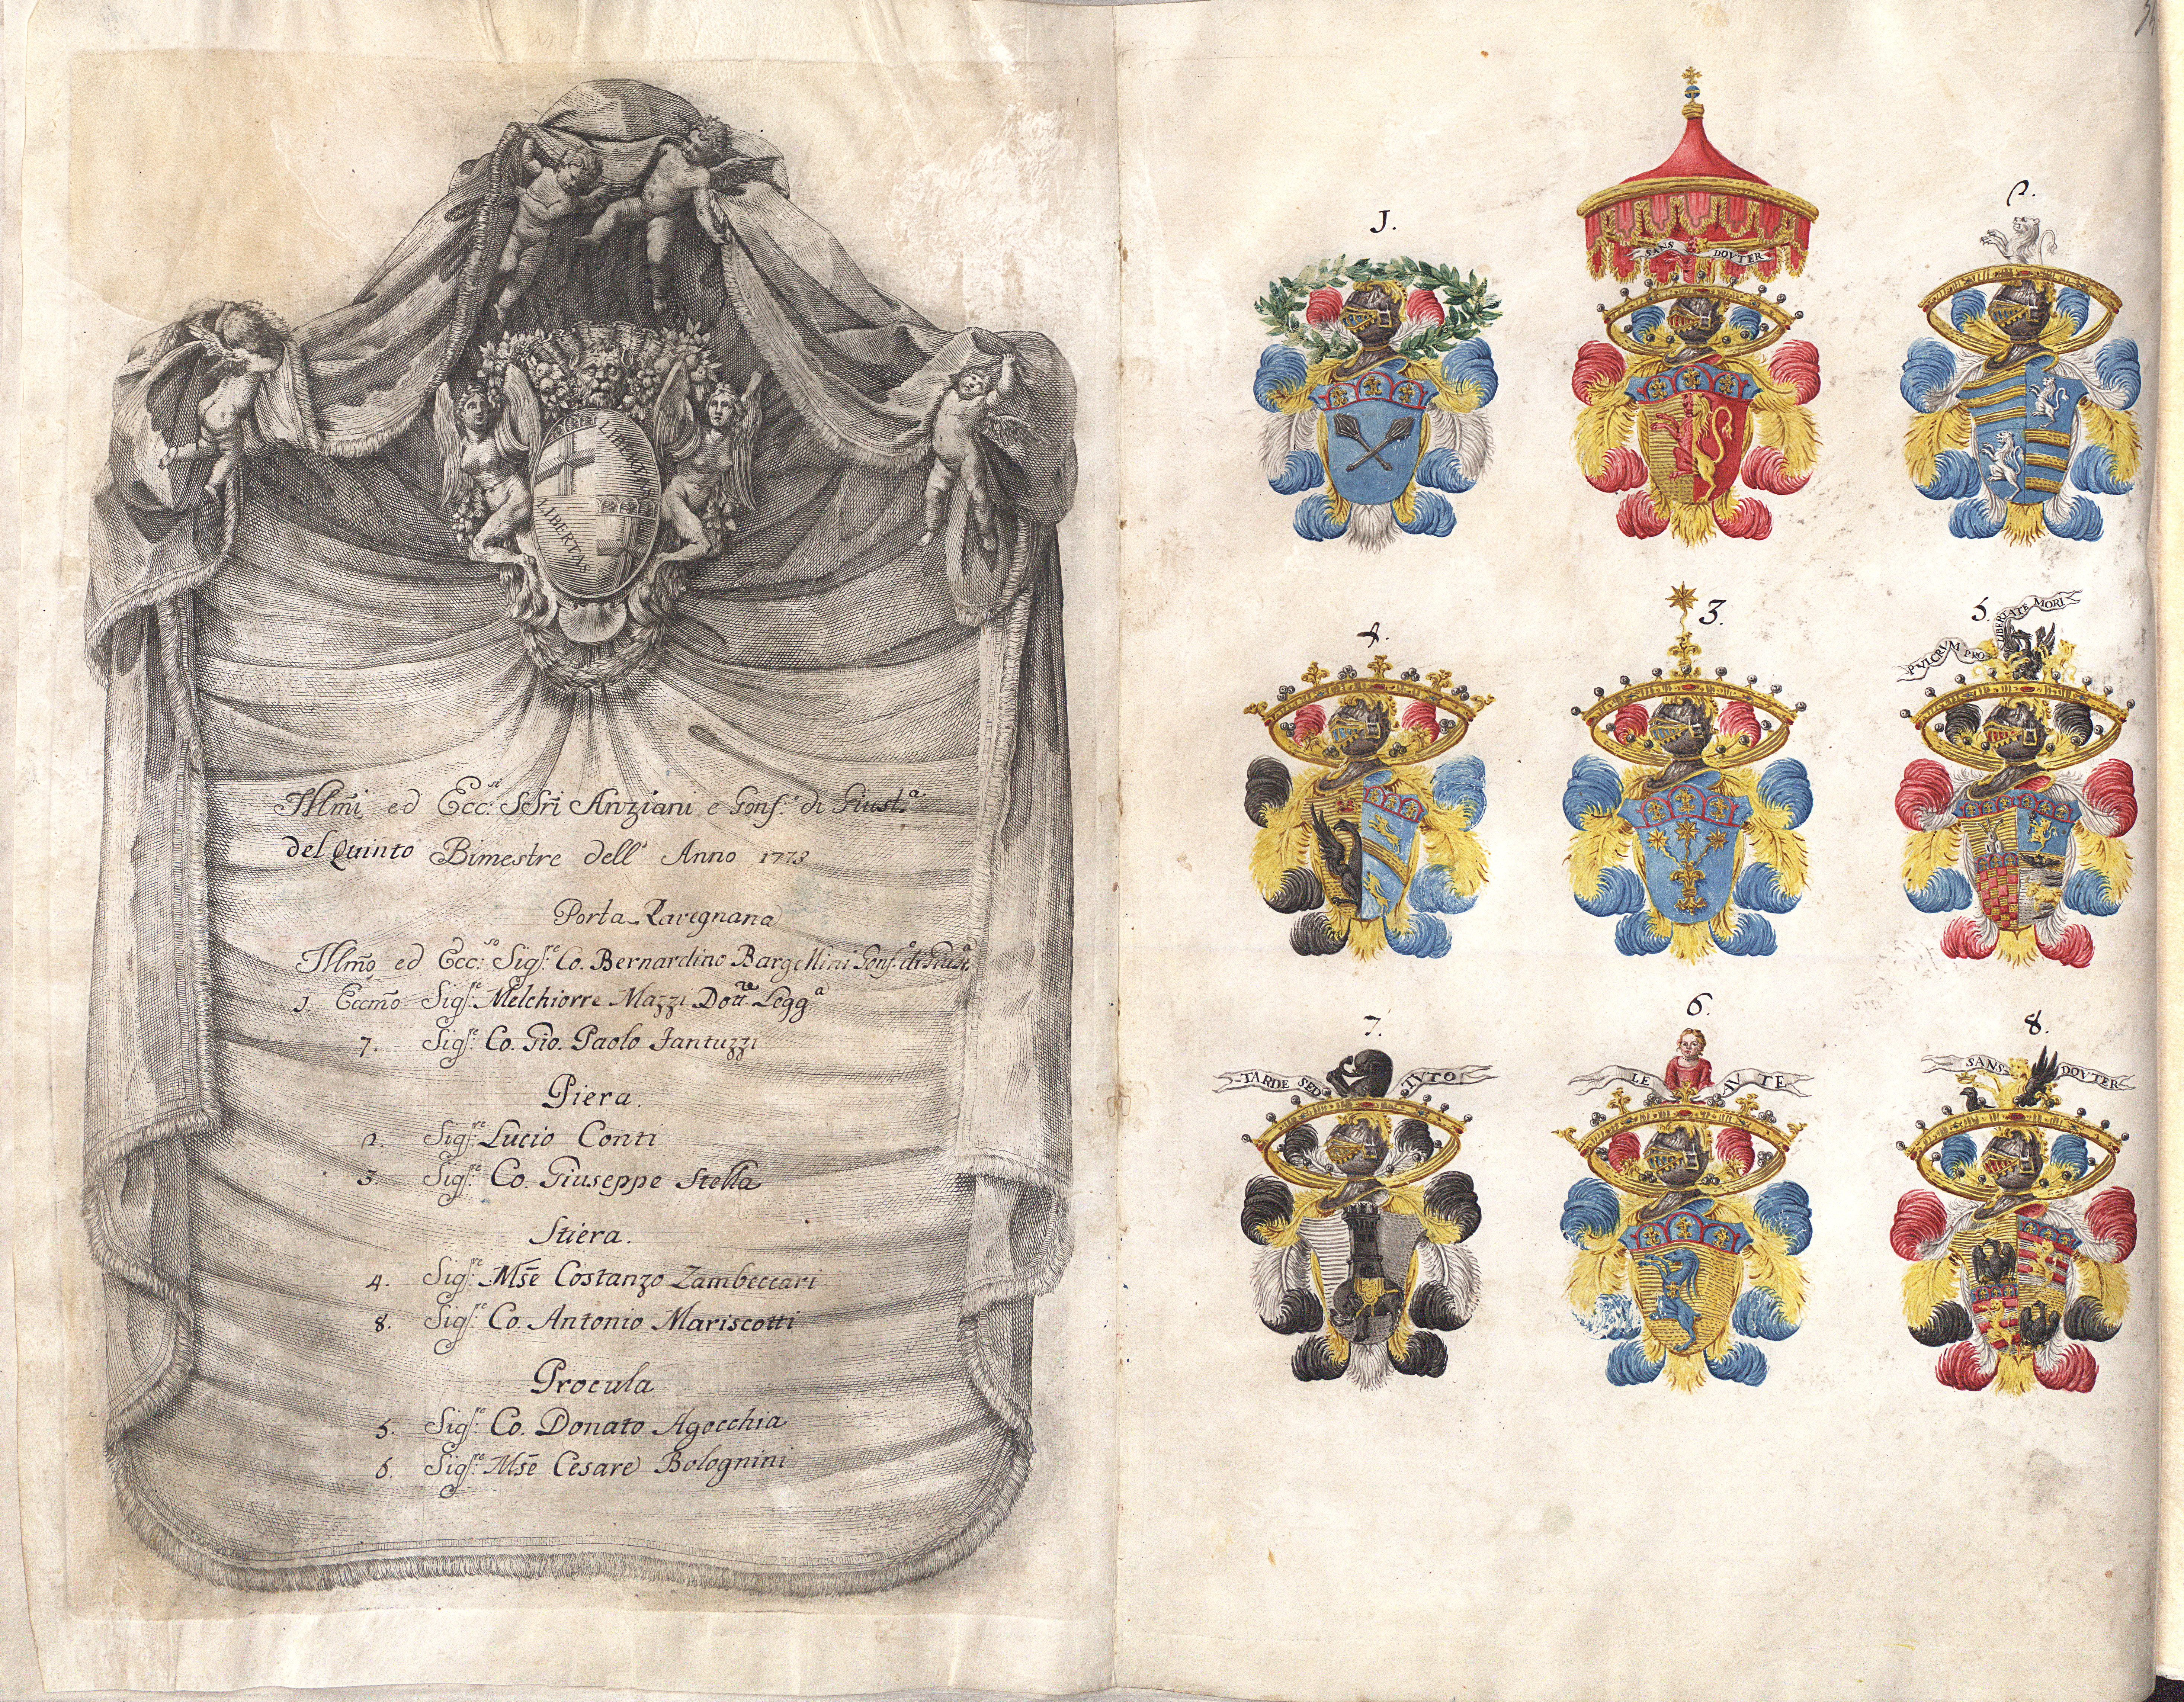 LIBERTAS
LIBERTAS
Illm̃i ed Ecc:si SSri Anziani e Gonf.e di Giust.a
del Quinto Bimestre dell' Anno 1773
Porta Ravegnana
Illm̃o ed Ecc:so Sig.re Co. Bernardino Bargellini Gonf.e di Giust.a
1. Eccm̃o Sig.re Melchiorre Mazzi Dott.re Legg.a
7. Sig.re Co. Gio. Paolo Fantuzzi
Piera.
2. Sig.re Lucio Conti
3. Sig.re Co. Giuseppe Stella
Stiera.
4. Sig.re Mse Costanzo Zambeccari
8. Sig.re Co. Antonio Mariscotti
Procula
5. Sig.re Co. Donato Agocchia
6. Sig.re Mse Cesare Bolognini
1.
SANS DOVTER
2.
4.
3.
5.
PVLCRVM PRO LIBERTATE MORI
7.
TARDE SED TVTO
6.
LE AV TE
8.
SANS DOVTER